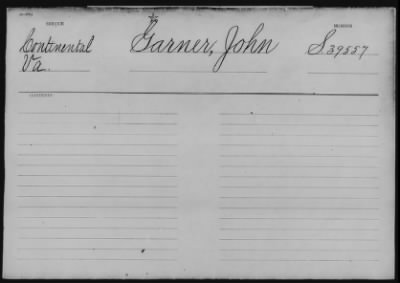 SERVICE
NUMBER
Continental
Va.
Garner, John
S 39557
CONTENTS